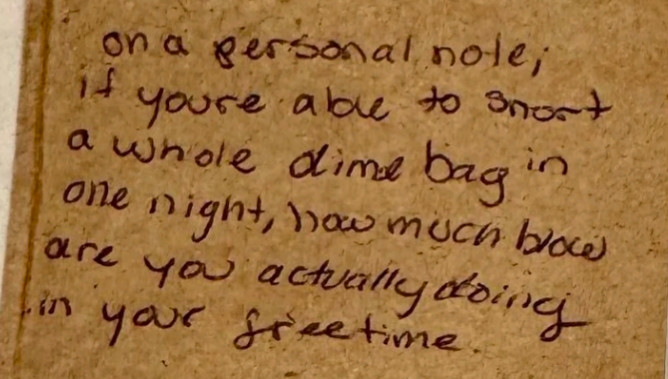 on a personal note;
if youre able to snort
a whole dime bag in
one night, how much blow
are you actually doing
in your freetime.